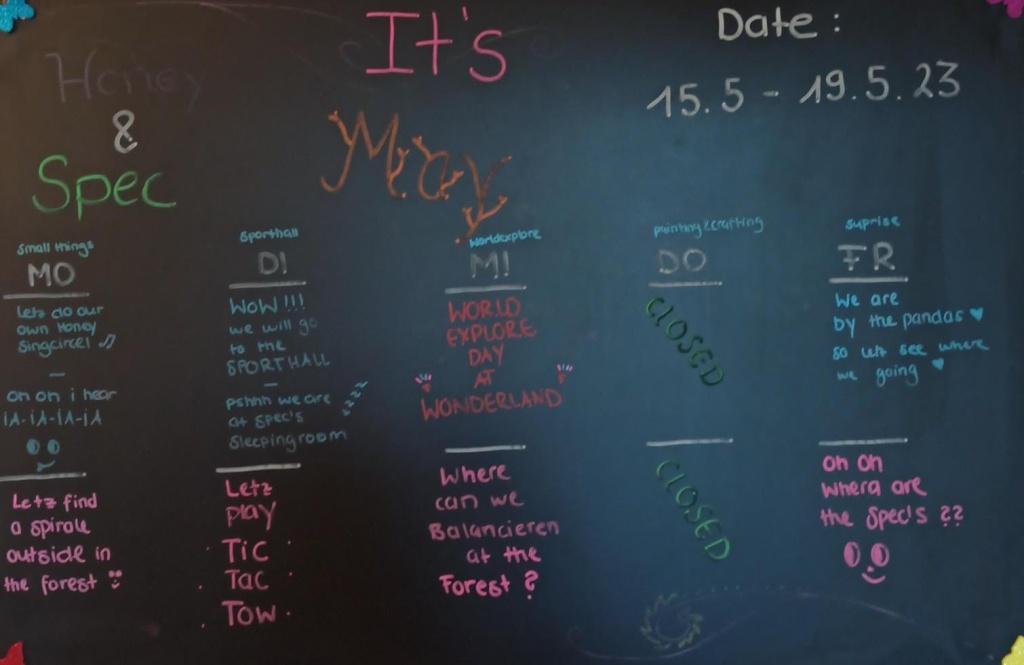 It's
Date :
Honey
&
Spec
May
15.5 - 19.5.23
small things
MO
Letz do our
own Honey
Singcircel ♫
—
oh oh i hear
iA-iA-iA-iA
Letz find
a spirale
outside in
the forest
Sporthall
DI
WOW !!!
we will go
to the
SPORTHALL
—
pshhh we are
at Spec's
Sleepingroom
zzzz
Letz
play
Tic
Tac
Tow
worldexplore
MI
WORLD
EXPLORE
DAY
AT
WONDERLAND
Where
can we
Balancieren
at the
Forest ?
painting & crafting
DO
CLOSED
CLOSED
suprise
FR
We are
by the pandas ♥
so letz see where
we going ♥
oh oh
whera are
the Spec's ??